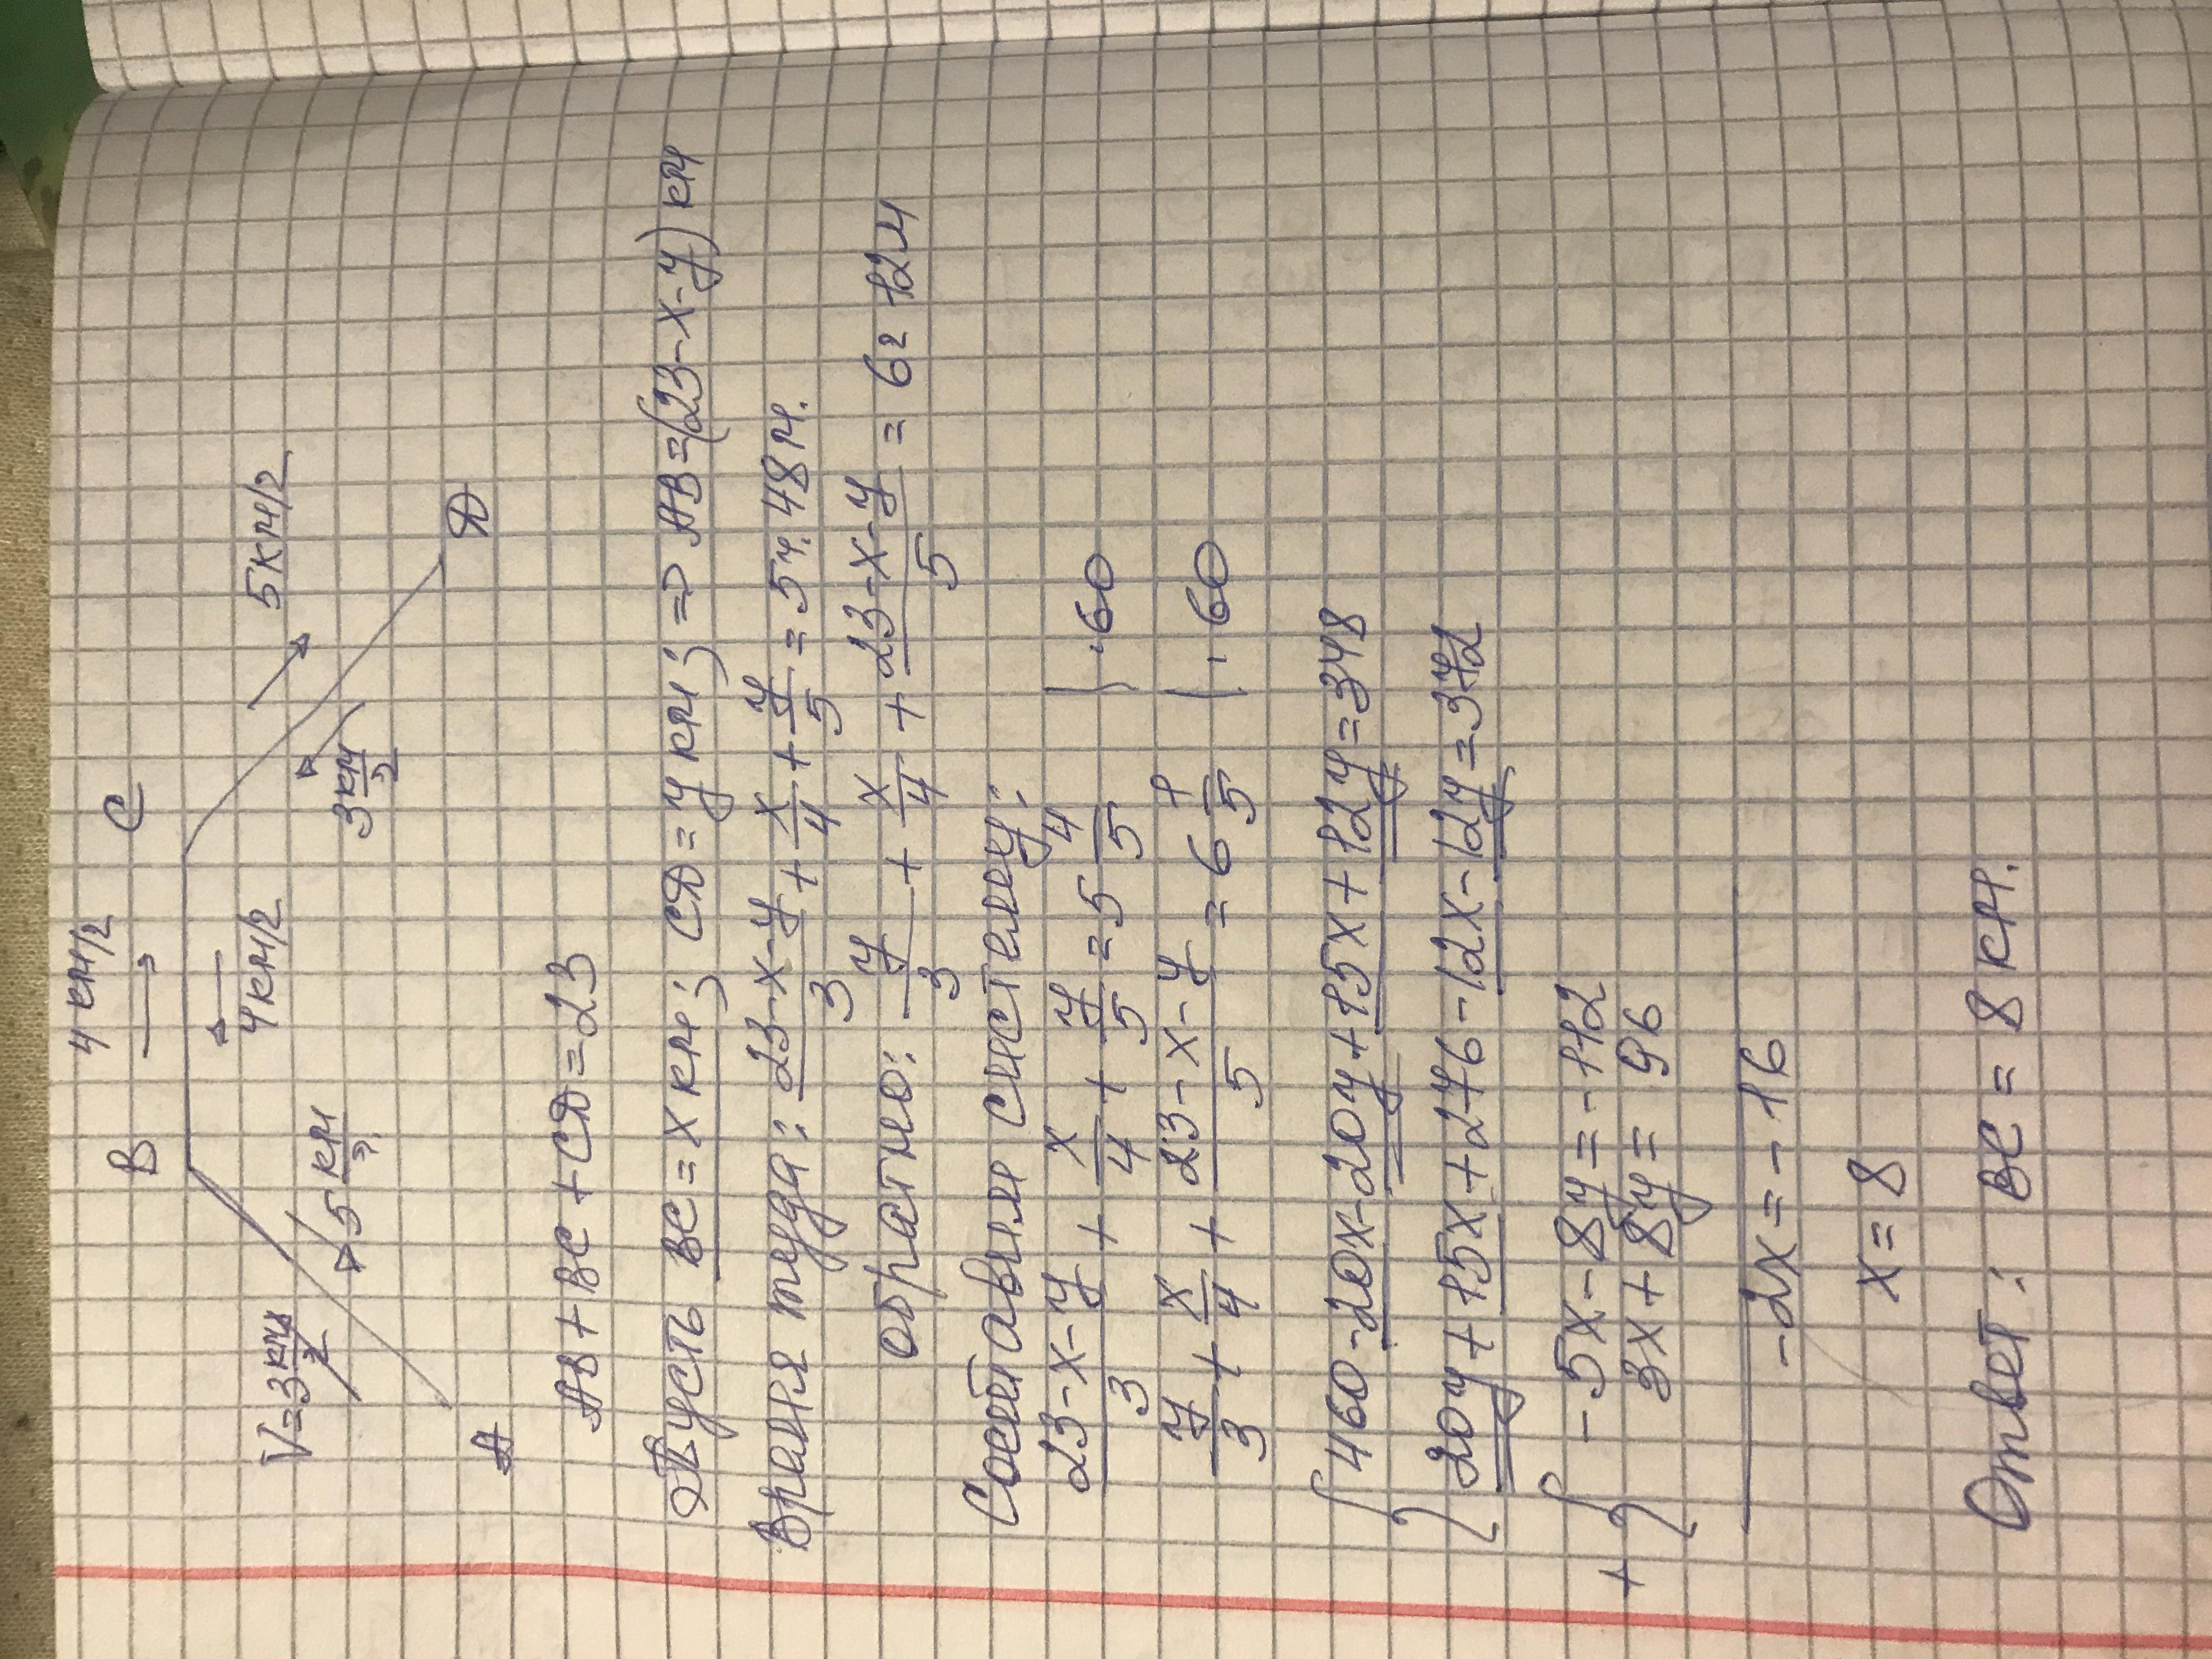 4 км/г
B C
V=3 км/г
5 км/г
5 км/г
4 км/г
3 км/г
A
Д
AB+BC+CД=23
Пусть BC=x км; CД=y км; => AB=(23-x-y) км
Время туда: (23-x-y)/3 + x/4 + y/5 = 5ч. 48 м.
обратно: y/3 + x/4 + (23-x-y)/5 = 6г 12м
Составим систему:
(23-x-y)/3 + x/4 + y/5 = 5 4/5 | ·60
y/3 + x/4 + (23-x-y)/5 = 6 1/5 | ·60
{ 460-20x-20y+15x+12y=348
20y+15x+276-12x-12y=372
+ { -5x-8y=-112
3x+8y= 96
-2x=-16
x=8
Ответ: BC = 8 км.